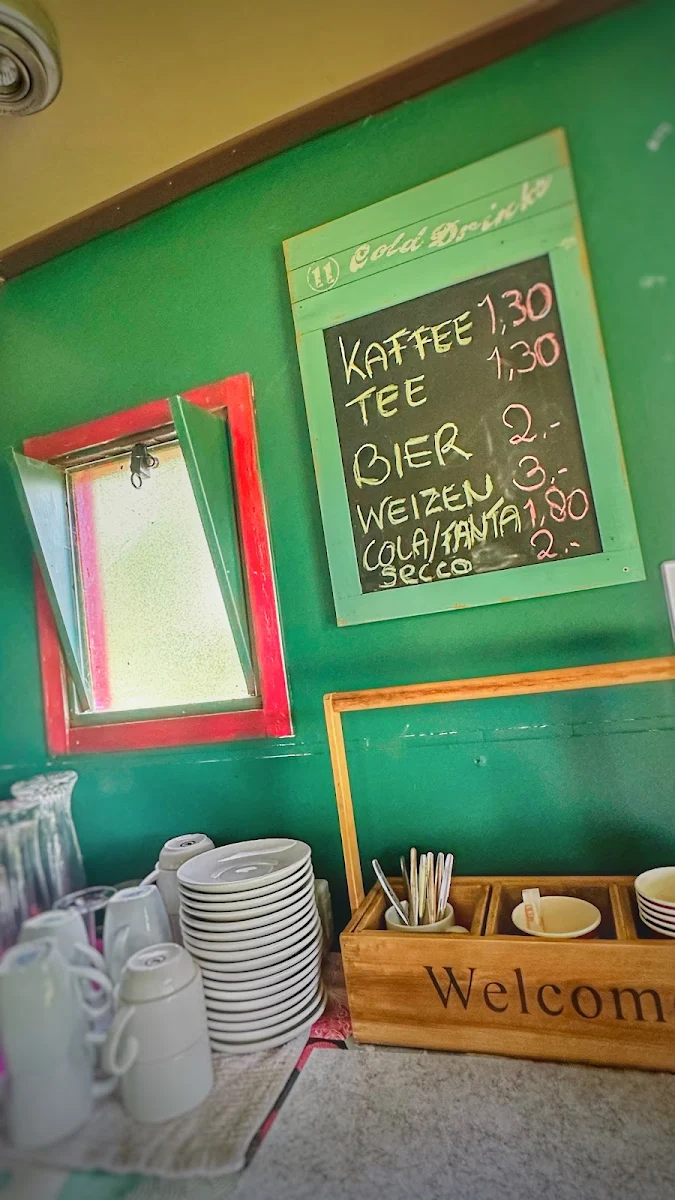 11 Cold Drinks
KAFFEE 1,30
TEE 1,30
BIER 2.-
WEIZEN 3,-
COLA/FANTA 1,80
Secco 2.-
Welcom